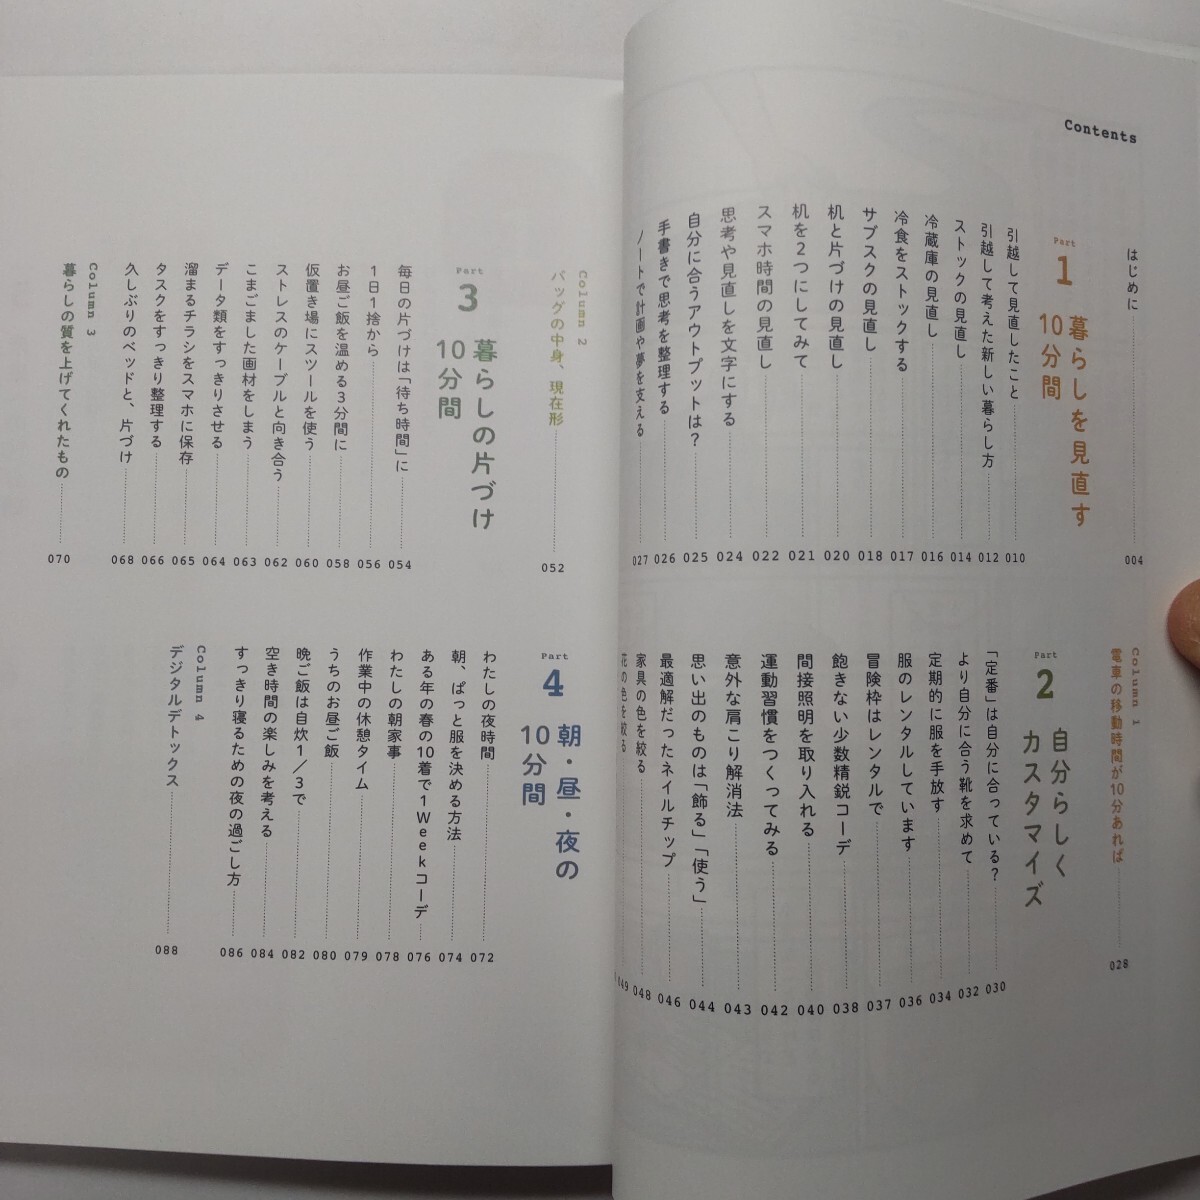 Contents
はじめに 004
Part
1 暮らしを見直す
10分間
引越しで見直したこと 010
引越しで考えた新しい暮らし方 012
ストックの見直し 014
冷蔵庫の見直し 016
冷食をストックする 017
サブスクの見直し 018
机と片づけの見直し 020
机を2つにしてみて 021
スマホ時間の見直し 022
思考や見直しを文字にする 024
自分に合うアウトプットは? 025
手書きで思考を整理する 026
ノートで計画や夢を支える 027
Column 1
電車の移動時間が10分あれば 028
Part
2 自分らしく
カスタマイズ
「定番」は自分に合っている? 030
より自分に合う靴を求めて 032
定期的に服を手放す 034
服のレンタルしています 036
冒険枠はレンタルで 037
飽きない少数精鋭コーデ 038
間接照明を取り入れる 040
運動習慣をつくってみる 042
意外な肩こり解消法 043
思い出のものは「飾る」「使う」 044
最適解だったネイルチップ 046
家具の色を絞る 048
花の色を絞る 049
Column 2
バッグの中身、現在形 052
Part
3 暮らしの片づけ
10分間
毎日の片づけは「待ち時間」に 054
1日1捨から 056
お昼ご飯を温める3分間に 058
仮置き場にスツールを使う 060
ストレスのケーブルと向き合う 062
こまごました画材をしまう 063
データ類をすっきりさせる 064
溜まるチラシをスマホに保存 065
タスクをすっきり整理する 066
久しぶりのベッドと、片づけ 068
Column 3
暮らしの質を上げてくれたもの 070
Part
4 朝・昼・夜の
10分間
わたしの夜時間 072
朝、ぱっと服を決める方法 074
ある年の春の10着で1Weekコーデ 076
わたしの朝家事 078
作業中の休憩タイム 079
うちのお昼ご飯 080
晩ご飯は自炊1/3で 082
空き時間の楽しみを考える 084
すっきり寝るための夜の過ごし方 086
Column 4
デジタルデトックス 088